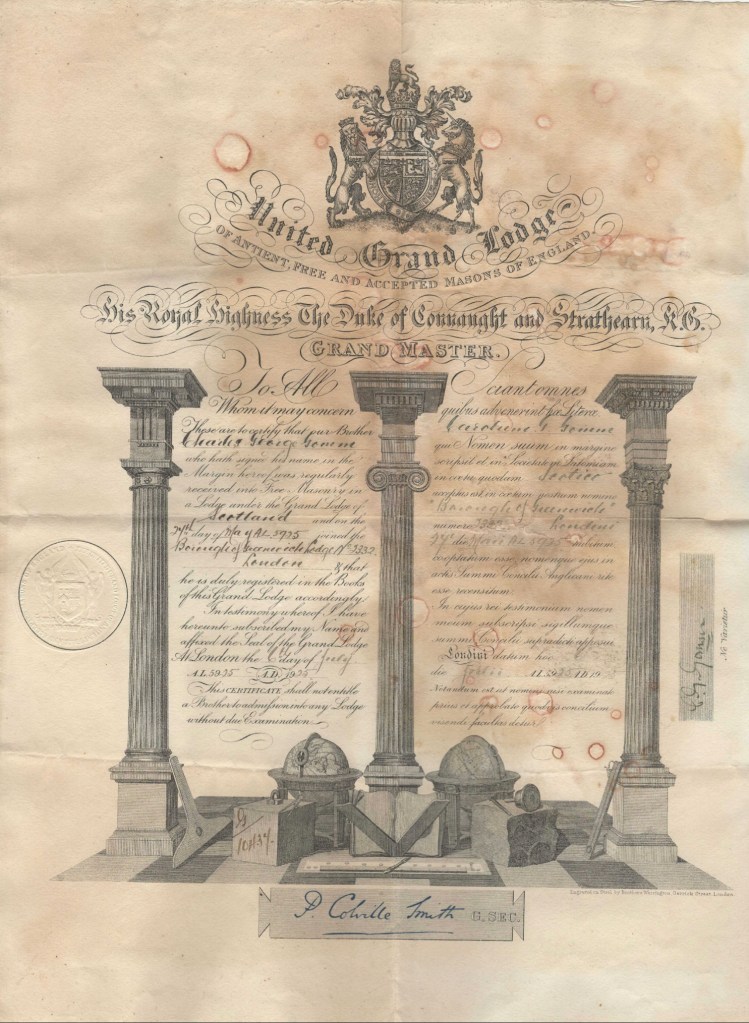 United Grand Lodge
OF ANTIENT, FREE AND ACCEPTED MASONS OF ENGLAND.
His Royal Highness The Duke of Connaught and Strathearn, K.G.
GRAND MASTER.
To All
Whom it may concern
These are to certify that our Brother
Charles George Gomm
who hath signed his name in the
Margin hereof was regularly
received into Free-Masonry in
a Lodge under the Grand Lodge of
Scotland and on the
27th day of May A.L. 5935 joined the
Borough of Greenwich Lodge No 3332
London & that
he is duly registered in the Books
of this Grand Lodge accordingly.
In testimony whereof I have
hereunto subscribed my Name and
affixed the Seal of the Grand Lodge
At London the day of July
A.L. 5935 A.D. 1935
This CERTIFICATE shall not entitle
a Brother to admission into any Lodge
without due Examination.
Sciant omnes
quibus advenerint hæ Literæ
qui Nomen suum in margine
scripsit et in Societatem Latomiam
in cœtu quodam Scotico
acceptus est in cœtum postum nomine
"Borough of Greenwich"
numero Londini
27 die Maii A.L. 5935
cooptatum esse nomenque ejus in
actis Summi Concilii Angliæ rite
esse recensitum.
In cujus rei testimonium nomen
meum subscripsi sigillumque
summi Concilii supradicti apposui
Londini datum hoc
die Julii A.L. 5935 A.D. 19
Notandum est ut nemini nisi examinato
prius et approbato quodvis concilium
ineundi facultas detur.
Ne Varietur
G
101137.
Engraved on Steel, by Brothers Warrington, Garrick Street, London.
P. Colville Smith G. SEC.